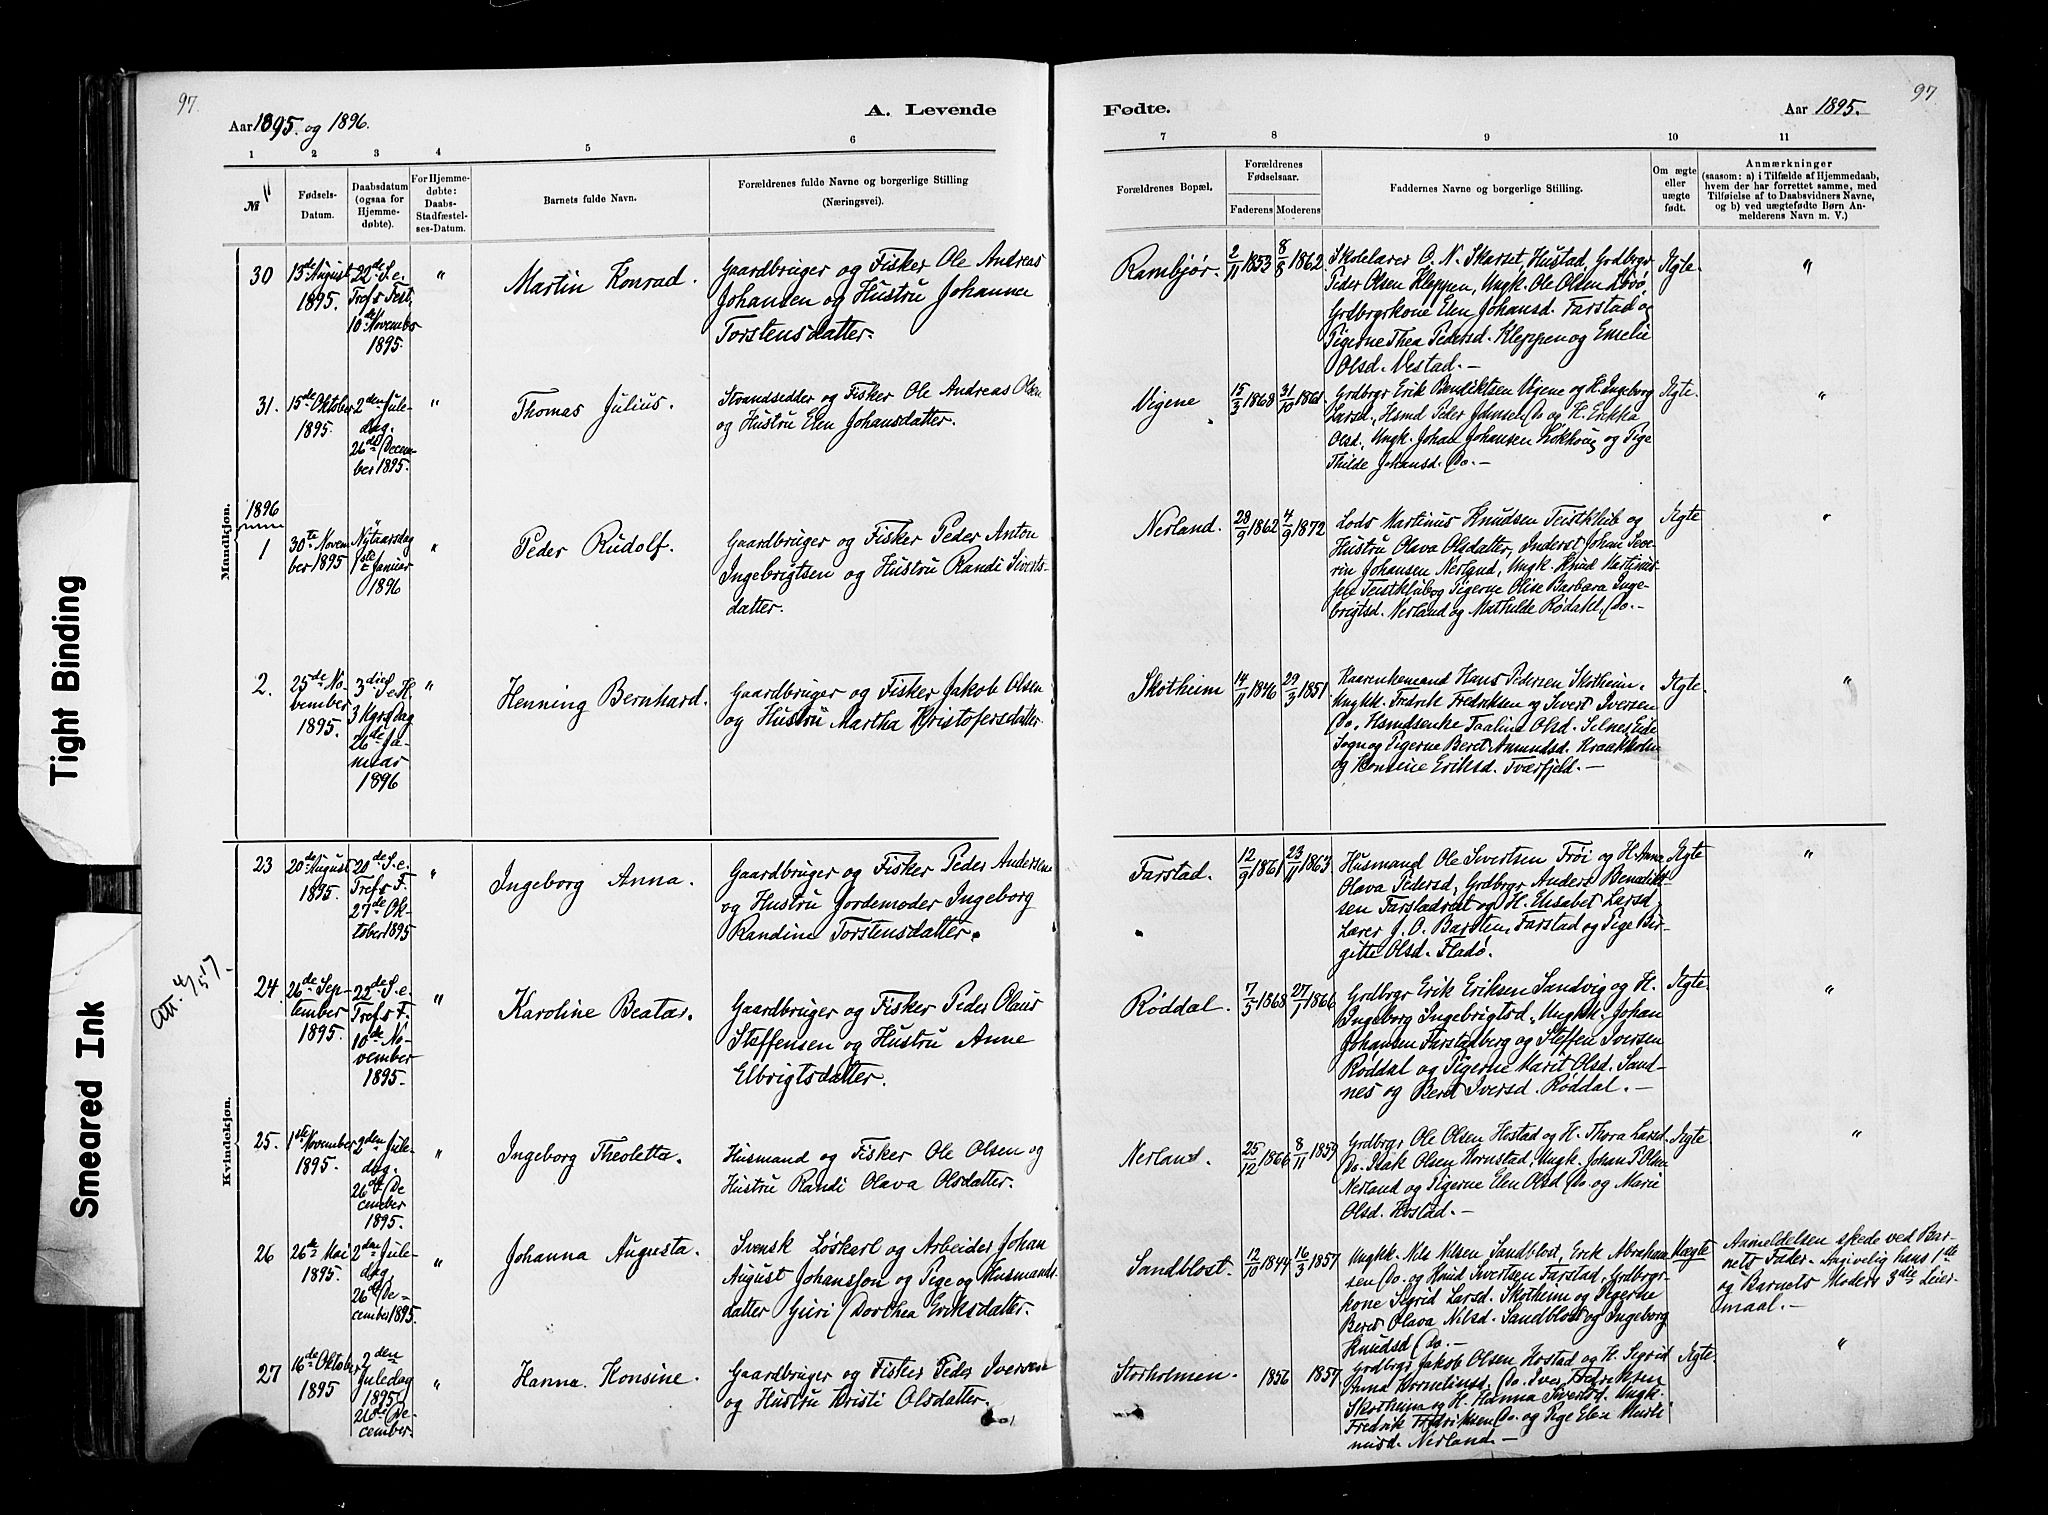 97.
Aar 1895. og 1896.
A. Levende
1 2 3 4 5 6
№
Fødsels-Datum.
Daabsdatum (ogsaa for Hjemmedøbte).
For Hjemmedøbte: Daabs-Stadfæstelses-Datum.
Barnets fulde Navn.
Forældrenes fulde Navne og borgerlige Stilling
(Næringsvei).
Mandkjøn.
30
13de August
1895.
22de S. e.
Tref's Fest,
10de Novembr
1895.
"
Martin Konrad.
Gaardbruger og Fisker Ole Andreas
Johansen og Hustru Johanna
Torstensdatter.
31.
15de Oktober
1895.
2den Jule-
dag.
26de Decem-
ber 1895.
"
Thomas Julius.
Strandsidder og Fisker Ole Andreas Olsen
og Hustru Elen Johansdatter.
1896
1
30te Novem-
ber 1895
Nytaarsdag
1ste Januar
1896
"
Peder Rudolf.
Gaardbruger og Fisker Peder Anton
Ingebrigtsen og Hustru Randi Siverts-
datter.
2.
25de No-
vember
1895.
3die S. e. H.
3 Kgrs Dag
26de Ja-
nuar
1896
"
Henning Bernhard.
Gaardbruger og Fisker Jakob Olsen
og Hustru Martha Kristofersdatter
Kvindekjøn.
23
20de August
1895.
20de S. e.
Tref's F.
27de Ok-
tober 1895
"
Ingeborg Anna.
Gaardbruger og Fisker Peder Andersen
og Hustru Jordemoder Ingeborg
Randine Torstensdatter.
Att. 4/5 17.
24.
26de Sep-
tember
1895.
22de S. e.
Tref's F.
10de No-
vember
1895.
"
Karoline Beatas.
Gaardbruger og Fisker Peder Olaus
Steffensen og Hustru Anne
Elbrigtsdatter.
25.
1ste November
1895.
2den Jule-
dag.
26de De-
cember
1895.
"
Ingeborg Theoletta.
Husmand og Fisker Ole Olsen og
Hustru Randi Olava Olsdatter.
26
26de Mai
1895.
2den Jule-
dag,
26de De-
cember 1895.
"
Johanna Augusta.
Svensk Løskarl og Arbeider Johan
August Johansson og Pige og Husmands-
datter Guri Dorthea Eriksdatter.
27
16de Oktober
1895
2den
Juledag
1895
26de De-
cember.
"
Hanna Konsine.
Gaardbruger og Fisker Peder Iversen
og Hustru Kristi Olsdatter.
97.
Fødte.
Aar 1895.
7 8 9 10 11
Forældrenes Bopæl.
Forældrenes Fødselsaar.
Faderens Moderens
Faddernes Navne og borgerlige Stilling.
Om ægte eller uægte født.
Anmærkninger
(saasom: a) i Tilfælde af Hjemmedaab,
hvem der har forrettet samme, med
Tilføielse af to Daabsvidners Navne,
og b) ved uægtefødte Børn An-
melderens Navn m. V.)
Rambjør.
2/11 1853
8/8 1862
Skolelærer O. N. Skarset, Hustad, Grdbrgr
Peder Olsen Kleppen, Ungk. Ole Olsen Løvø,
Grdbrgrkone Elen Johansd. Farstad og
Pigerne Thea Pedersd. Kleppen og Emelie
Olsd. Nestad.
Ægte.
"
Vigene
15/3 1868
31/10 1861
Grdbrgr Erik Bendiktsen Vigene og H. Ingeborg
Larsd., Hsmd Peder Johnsen Do og H. Erikka
Olsd. Ungk. Johan Johansen og Pige
Thilde Johansd. Do. —
Ægte.
"
Nerland.
28/9 1862
4/9 1872
Lods Martinus Knudsen Teistklub og
Hustru Olava Olsdatter, Inderst Johan Seve-
rin Johansen Nerland, Ungk. Knud Martinus-
sen Teistklub og Pigerne Olise Barbara Inge-
brigtsd. Nerland og Mathilde Rødahl, Do. —
Ægte
"
Skotheim
14/11 1846
29/3 1851
Kaarenkemand Hans Pedersen Skotheim.
Ungkk. Fredrik Fredriksen og Sivert Iversen
Do. Hsmdsenke Olsd. Selnes Eide
Sogn og Pigerne Beret Amundsd. Kraakholm
og Konsine Eriksd. Tværfjeld. —
Ægte.
"
Farstad.
12/9 1861
23/11 1863
Husmand Ole Sivertsen Frøi og H. Anna
Olava Pedersd., Grdbrgr Anders Benedikt-
sen Farstad og H. Elisabet Larsd,
Lærer J. O. Barsten, Farstad og Pige Bir-
gitte Olsd. Fladø.
Ægte
"
Røddal.
7/5 1868
27/1 1866
Grdbrgr Erik Eriksen Sandvig og H.
Ingeborg Ingebrigtsd., Ungkk. Johan
Johansen Farstadberg og Steffen Iversen
Røddal og Pigerne Marit Olsd. Sand-
nes og Beret Iversd. Røddal. —
Ægte.
"
Nerland.
25/12 1866
8/11 1859
Grdbrgr Ole Olsen Hostad og H. Thora Larsd.
Do. Isak Olsen Hornstad, Ungk. Johan P. Olsen
Nerland og Pigerne Elen Olsd Do. og Marie
Olsd. Hostad. —
Ægte
"
Sandblost.
12/10 1844
16/3 1857
Ungkk. Nils Nilsen Sandblost, Erik Abraham-
sen Do. og Knud Sivertsen Farstad, Grdbrgr-
kone Sigrid Larsd. Skotheim og Pigerne
Beret Olava Nilsd. Sandblost og Ingeborg
Knudsd Do. —
Uægte
Anmeldelsen skede ved Bar-
nets Fader. Angivelig hans 1ste
og Barnets Moders 3die Leier-
maal. —
Storholmen.
1856
1857
Grdbrgr Jakob Olsen Hostad og H. Sigrid
Anna Korneliusd. Do. Iver Fredriksen
Skotheim og H. Hanna Sivertsd. Ungk.
Fredrik Fredriksen Do. og Pige Elen Marti
nusd. Nerland —
Ægte.
"
Tight Binding
Smeared Ink